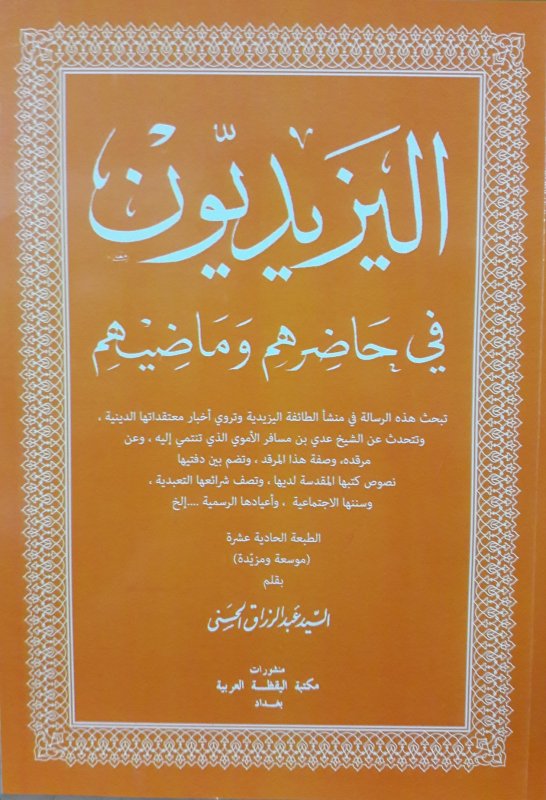 اليزيديّون
في حَاضِرهِم وَمَاضِيْهِم
تبحث هذه الرسالة في منشأ الطائفة اليزيدية وتروي أخبار معتقداتها الدينية ،
وتتحدث عن الشيخ عدي بن مسافر الأموي الذي تنتمي إليه ، وعن
مرقده، وصفة هذا المرقد ، وتضم بين دفتيها
نصوص كتبها المقدسة لديها ، وتصف شرائعها التعبدية ،
وسننها الاجتماعية ، وأعيادها الرسمية ....إلخ
الطبعة الحادية عشرة
(موسعة ومزيّدة)
بقلم
السّيد عَبد الرزاق الحسَني
منشورات
مكتبة اليقظة العربية
بغداد